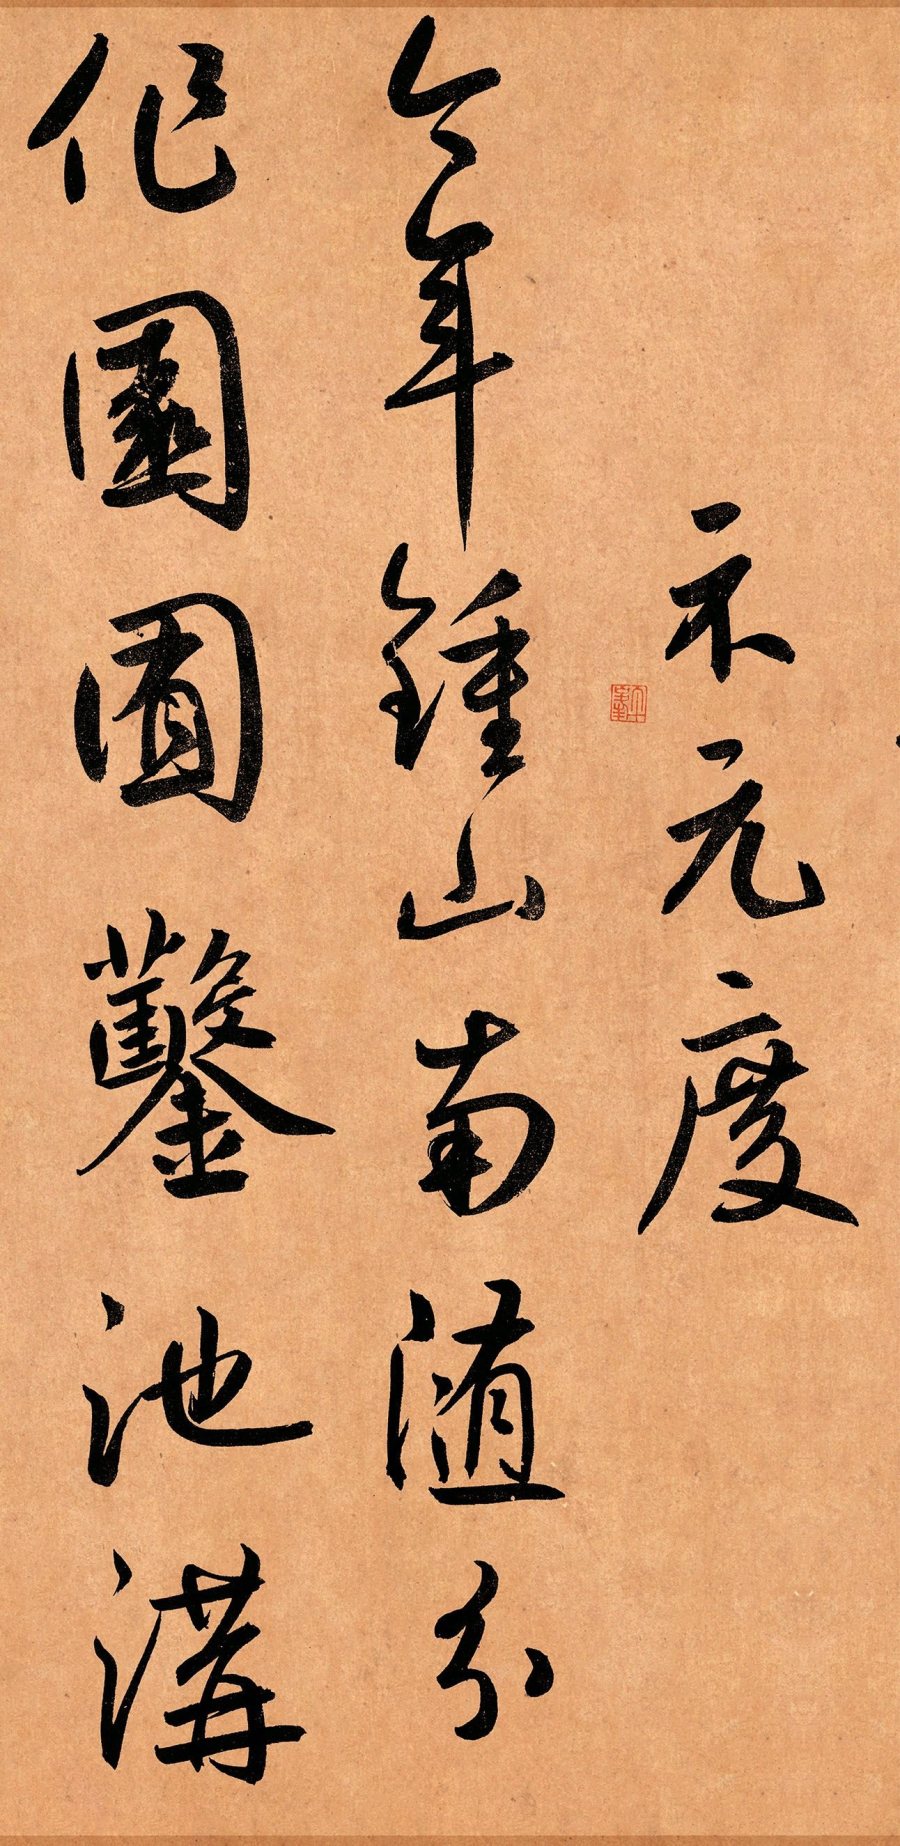 示元度
今年鍾山南随分
作園囿鑿池溝